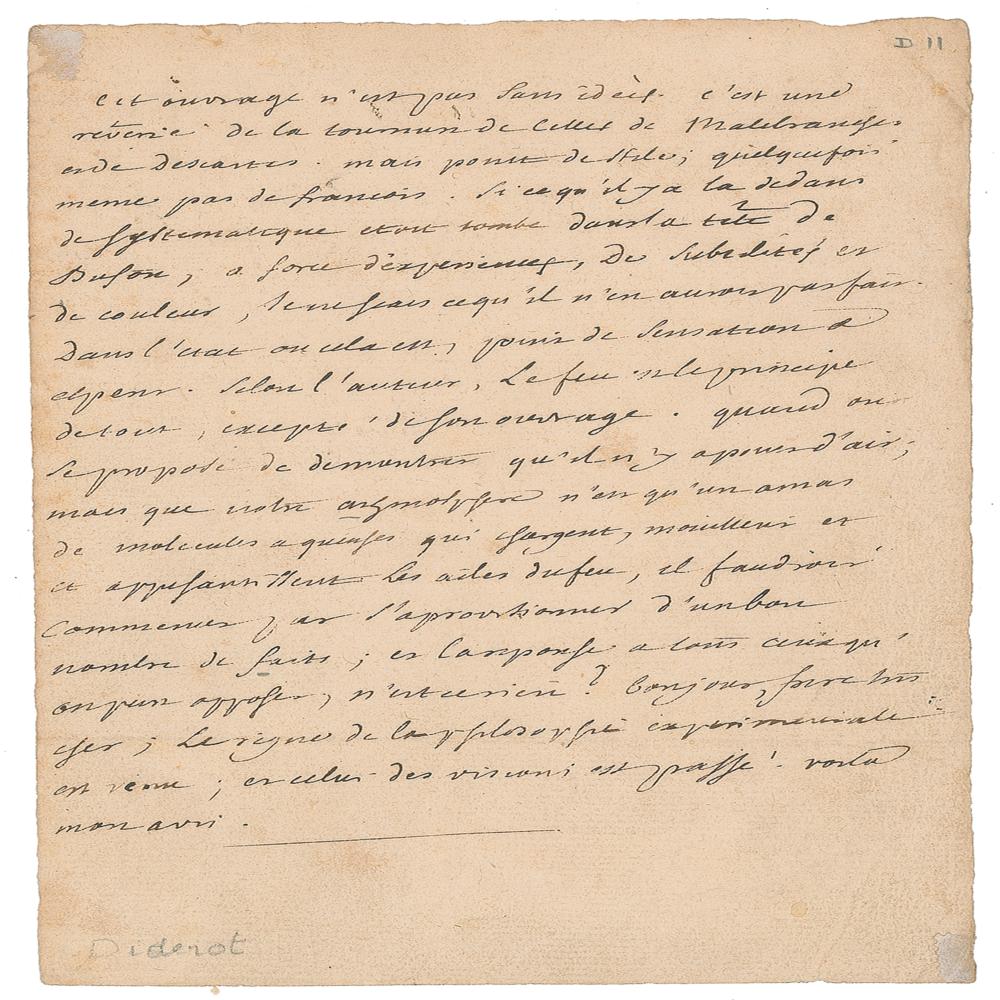 D 11
cet ouvrage n'est pas sans idées. c'est une
reverie de la tournure de celles de Malebranche
et de Descartes. mais point de stile; quelquefois
meme pas de francois. Si ce qu'il y a la dedans
de systematique etoit tombé dans la tête de
Bufon, a force d'experiences, de subtilités et
de couleur, je ne scais ce qu'il n'en auroit pas fait.
Dans l'etat ou cela est, point de sensation a
esperer. Selon l'auteur, le feu est le principe
de tout, excepté de son ouvrage. quand on
se propose de demontrer qu'il n'y a point d'air,
mais que notre athmosphere n'est qu'un amas
de molecules aqueuses qui chargent, mouillent et
et appesantissent les ailes du feu, il faudroit
commencer par s'aprovisionner d'un bon
nombre de faits; et la reponse a tous ceux qu'
on peut opposer, n'est ce rien? Bonjour, frere tres
cher; Le regne de la philosophie experimentale
est venu; et celui des visions est passé. voila
mon avis.
Diderot